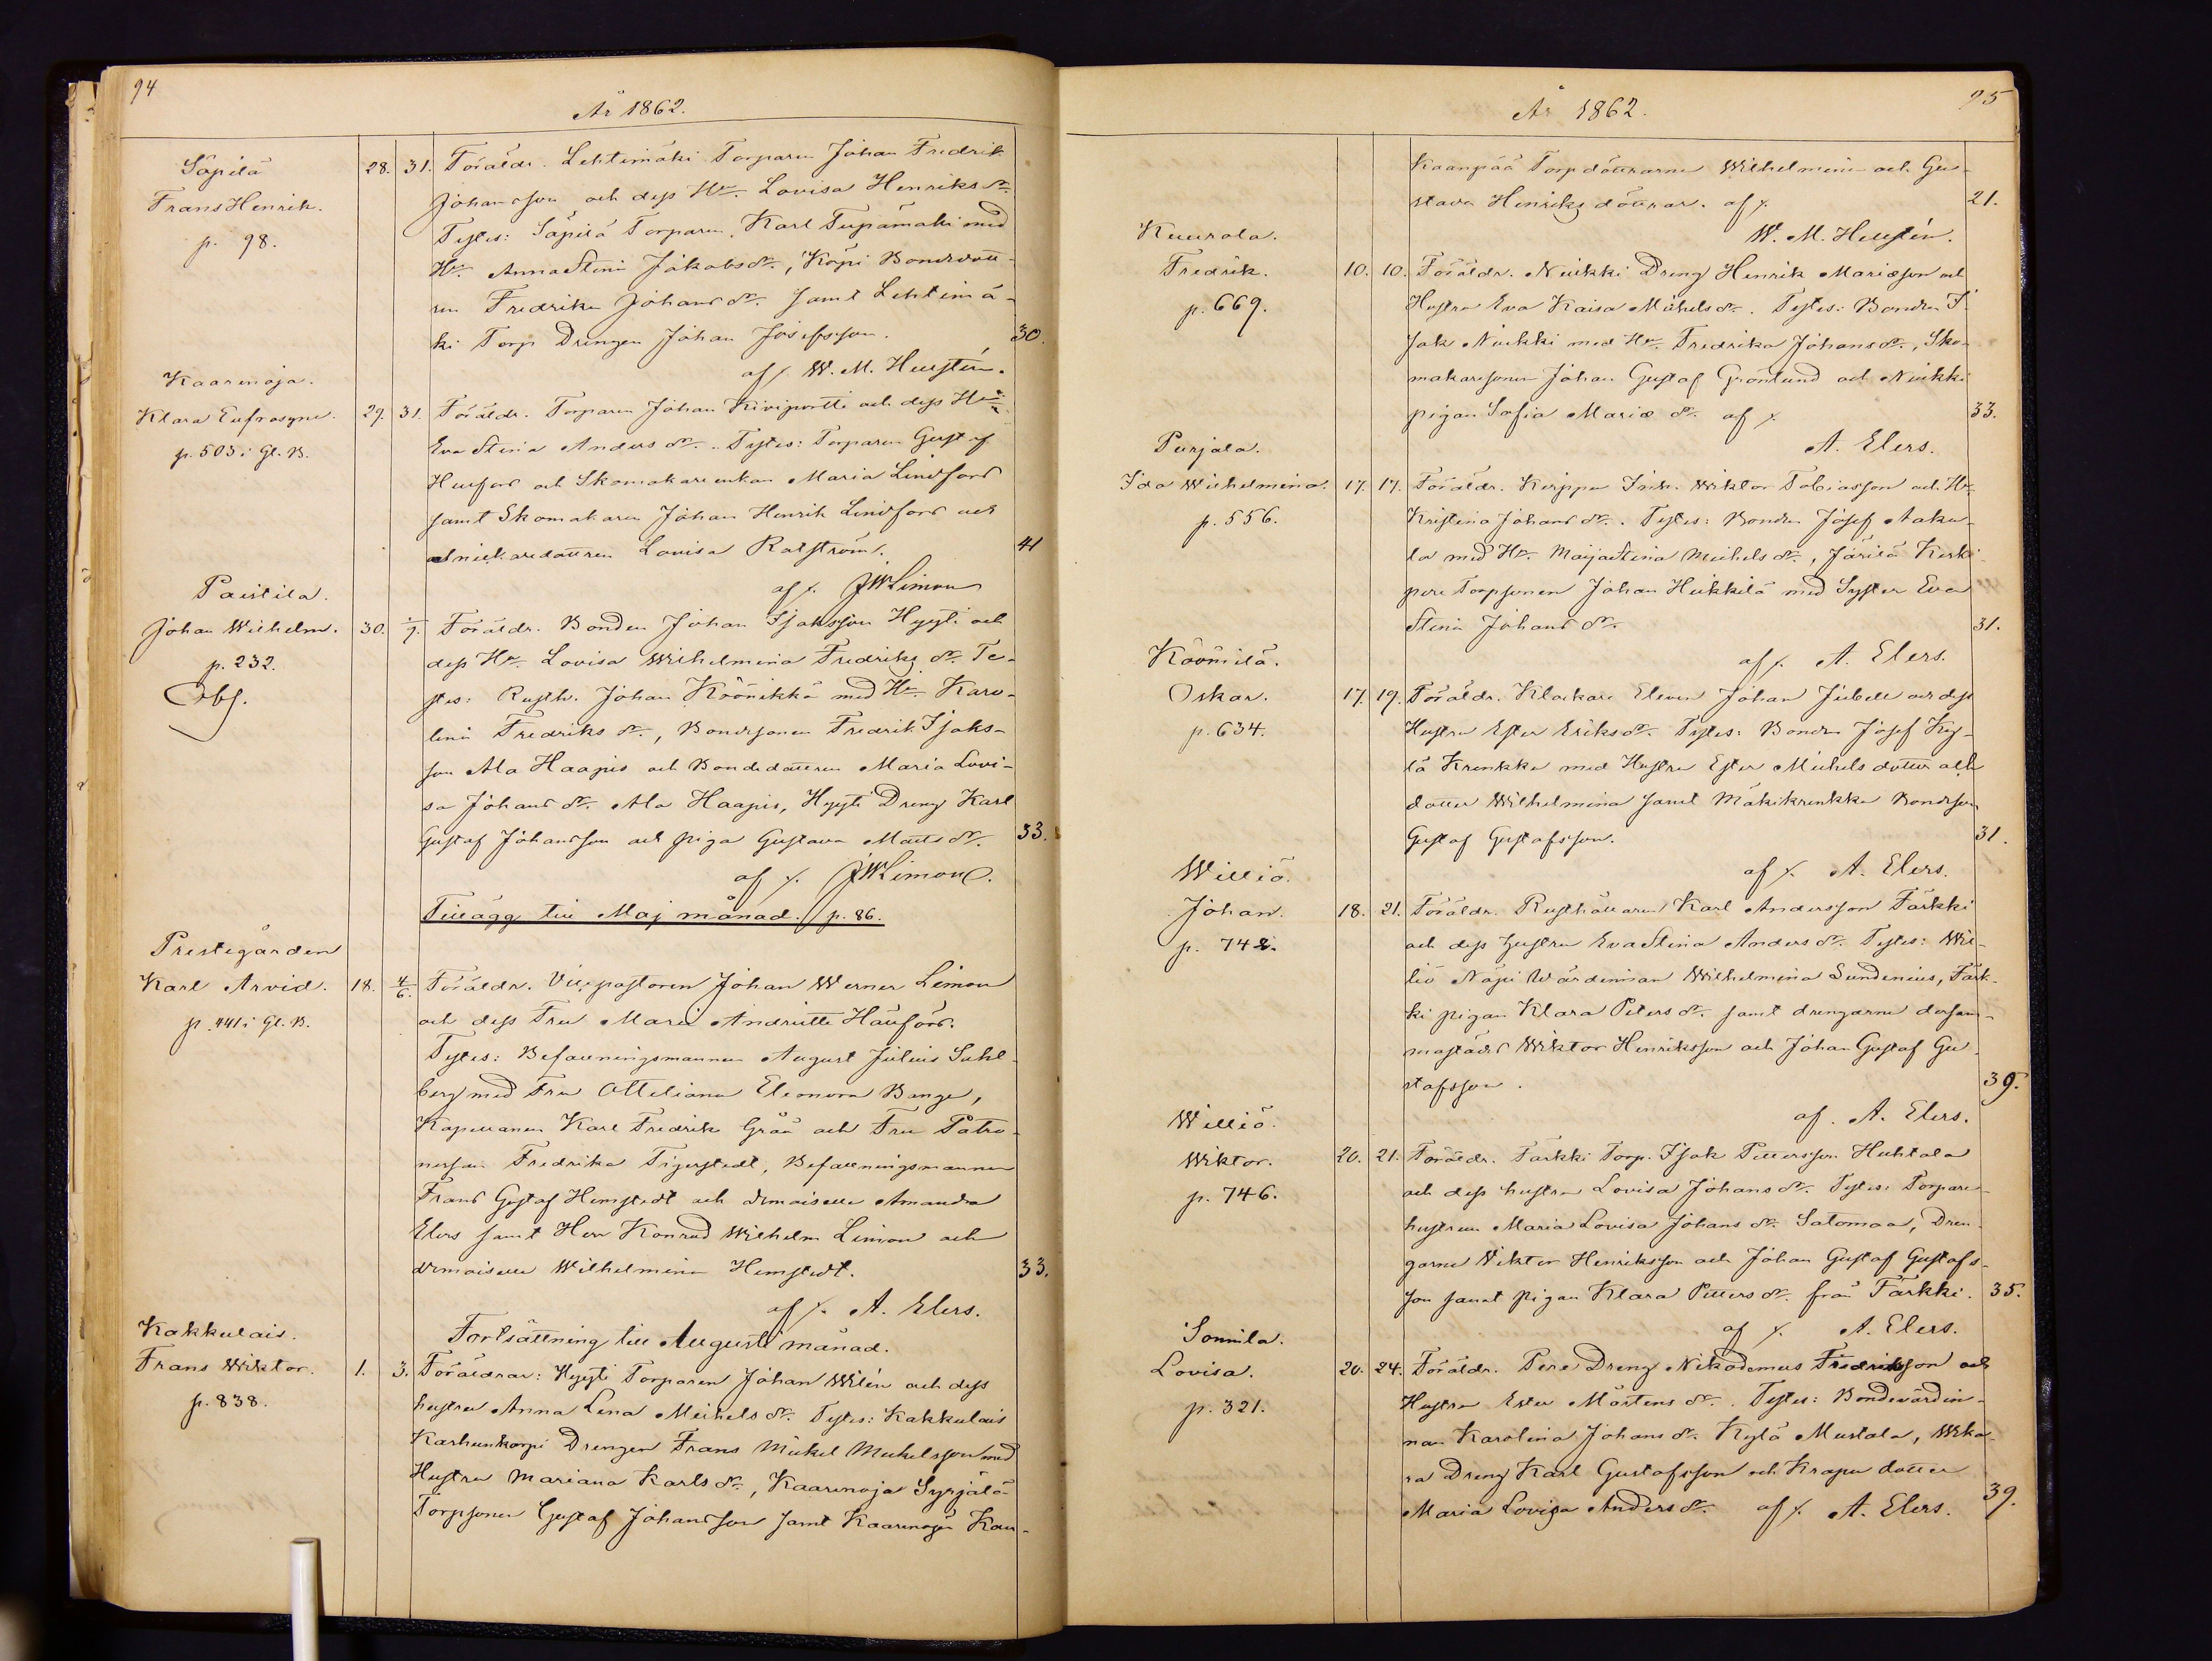 94
År 1862.
Säpilä
Frans Henrik.
p. 98.
28. 31. Föräldr. Lehtimäki Torparen Johan Fredrik
Johansson och dess Hu. Lovisa Henriks dr.
Testes: Säpilä Torparen Karl Tupamäki med
Hu. Anna Stina Jakobs dr., Köpi Bondedott-
ren Fredrika Johans dr. samt Lehtimä-
ki Torp Drengen Johan Josefsson. 30.
af W. M. Heurlin.
Kaarenoja.
Klara Eufrosyne.
p. 503 i Gl. B.
29. 31. Föräldr. Torparen Johan Kiviportti och dess Hu
Eva Stina Anders dr. Testes: Torparen Gustaf
Husfors och Skomakareenkan Maria Lindfors
samt Skomakaren Johan Henrik Lindfors och
Snickaredottren Lovisa Rosström. 41
af J W Limon
Paistila.
Johan Wilhelm.
p. 232.
Obs.
30. 1/7. Föräldr. Bonden Johan Isaksson Hyyti och
dess Hu. Lovisa Wilhelmina Fredriks dr. Te-
stes: Rusth. Johan Köönikkä med Hu Karo-
lina Fredriks dr., Bondesonen Fredrik Isaks-
son Ala Haapio och Bondedottren Maria Lovi-
sa Johans dr. Ala Haapio, Hyyti Dreng Karl
Gustaf Johansson och piga Gustava Matts dr. 33.
af J W Limon.
Tillägg till Maj månad. p. 86.
Prestegården
Karl Arvid.
p. 441 i Gl. B.
18. 4/6. Föräldr. Vicepastoren Johan Werner Limon
och dess Fru Maria Andriette Häufors.
Testes: Befallningsmannen August Julius Sahl-
berg med Fru Otteliana Eleonora Bange,
Kapellanen Karl Fredrik Gråå och Fru Patro-
nessan Fredrika Tigerstedt, Befallningsmannen
Frans Gustaf Hemstedt och demoiselle Amanda
Elers samt Herr Konrad Wilhelm Limon och
demoiselle Wilhelmina Hemstedt. 33.
af A. Elers.
Fortsättning till Augusti månad.
Kakkulais.
Frans Wiktor.
p. 838.
1. 3. Föräldrar: Hyyti Torparen Johan Wilén och dess
hustru Anna Lena Michels dr. Testes: Kakkulais
Karhunkorpi Drengen Frans Mickel Mickelsson med
Hustru Mariana Karls dr., Kaarenoja Syrjälä
Torpsonen Gustaf Johansson samt Kaarenoja Kan-
95
År 1862.
Kaanpää Torpdöttrarne Wilhelmina och Gu-
stava Henriksdöttrar. af 21.
W. M. Heurlin.
Kuurola.
Fredrik.
p. 669.
10. 10. Föräldr. Nuikki Dreng Henrik Mariæson och
Hustru Eva Kaisa Michels dr. Testes: Bonden I-
sak Nuikki med Hu. Fredrika Johans dr., Sko-
makaresonen Johan Gustaf Grönlund och Nuikki
pigan Sofia Mariæ dr. af 33.
A. Elers.
Purjala.
Ida Wilhelmina.
p. 556.
17. 17. Föräldr. Kerppa Inh. Wiktor Tobiasson och Hu.
Kristina Johans dr. Testes: Bonden Josef Aaku-
la med Hu. Maija Stina Michels dr., Järilä Kerk-
pere Torpsonen Johan Heikkilä med Syster Eva
Stina Johans dr. 31.
af A. Elers.
Köömilä.
Oskar.
p. 634.
17. 19. Föräldr. Klockare Eleven Johan Jubell och dess
Hustru Ester Eriks dr. Testes: Bonden Josef Ky-
lä Krenkka med Hustru Ester Michels dotter och
dotter Wilhelmina samt Mäkikrenkka Bondeson
Gustaf Gustafsson. 31.
af A. Elers.
Williö.
Johan.
p. 742.
18. 21. Föräldr. Rusthållaren Karl Andersson Tärkki
och dess hustru Eva Stina Anders dr. Testes: Wil-
liö Näpi Wärdinnan Wilhelmina Sundenius, Tärk-
ki pigan Klara Peters dr. samt drengarne dersam-
mastädes Wiktor Henriksson och Johan Gustaf Gu-
stafsson. 39.
af. A. Elers.
Williö.
Wiktor.
p. 746.
20. 21. Föräldr. Tärkki Torp. Isak Pettersson Huhtala
och dess hustru Lovisa Johans dr. Testes: Torpare-
hustrun Maria Lovisa Johans dr. Salomaa, Dren-
garne Wiktor Henriksson och Johan Gustaf Gustafs-
son samt pigan Klara Petters dr. från Tärkki. 35.
af A. Elers.
Sonnila.
Lovisa.
p. 321.
20. 24. Föräldr. Pere Dreng Nikodemus Fredriksson och
Hustru Ester Mårtens dr. Testes: Bondevärdin-
nan Karolina Johans dr. Kylä Mustala, Uka-
ra Dreng Karl Gustafsson och Krapu dotter
Maria Lovisa Anders dr. af A. Elers. 39.